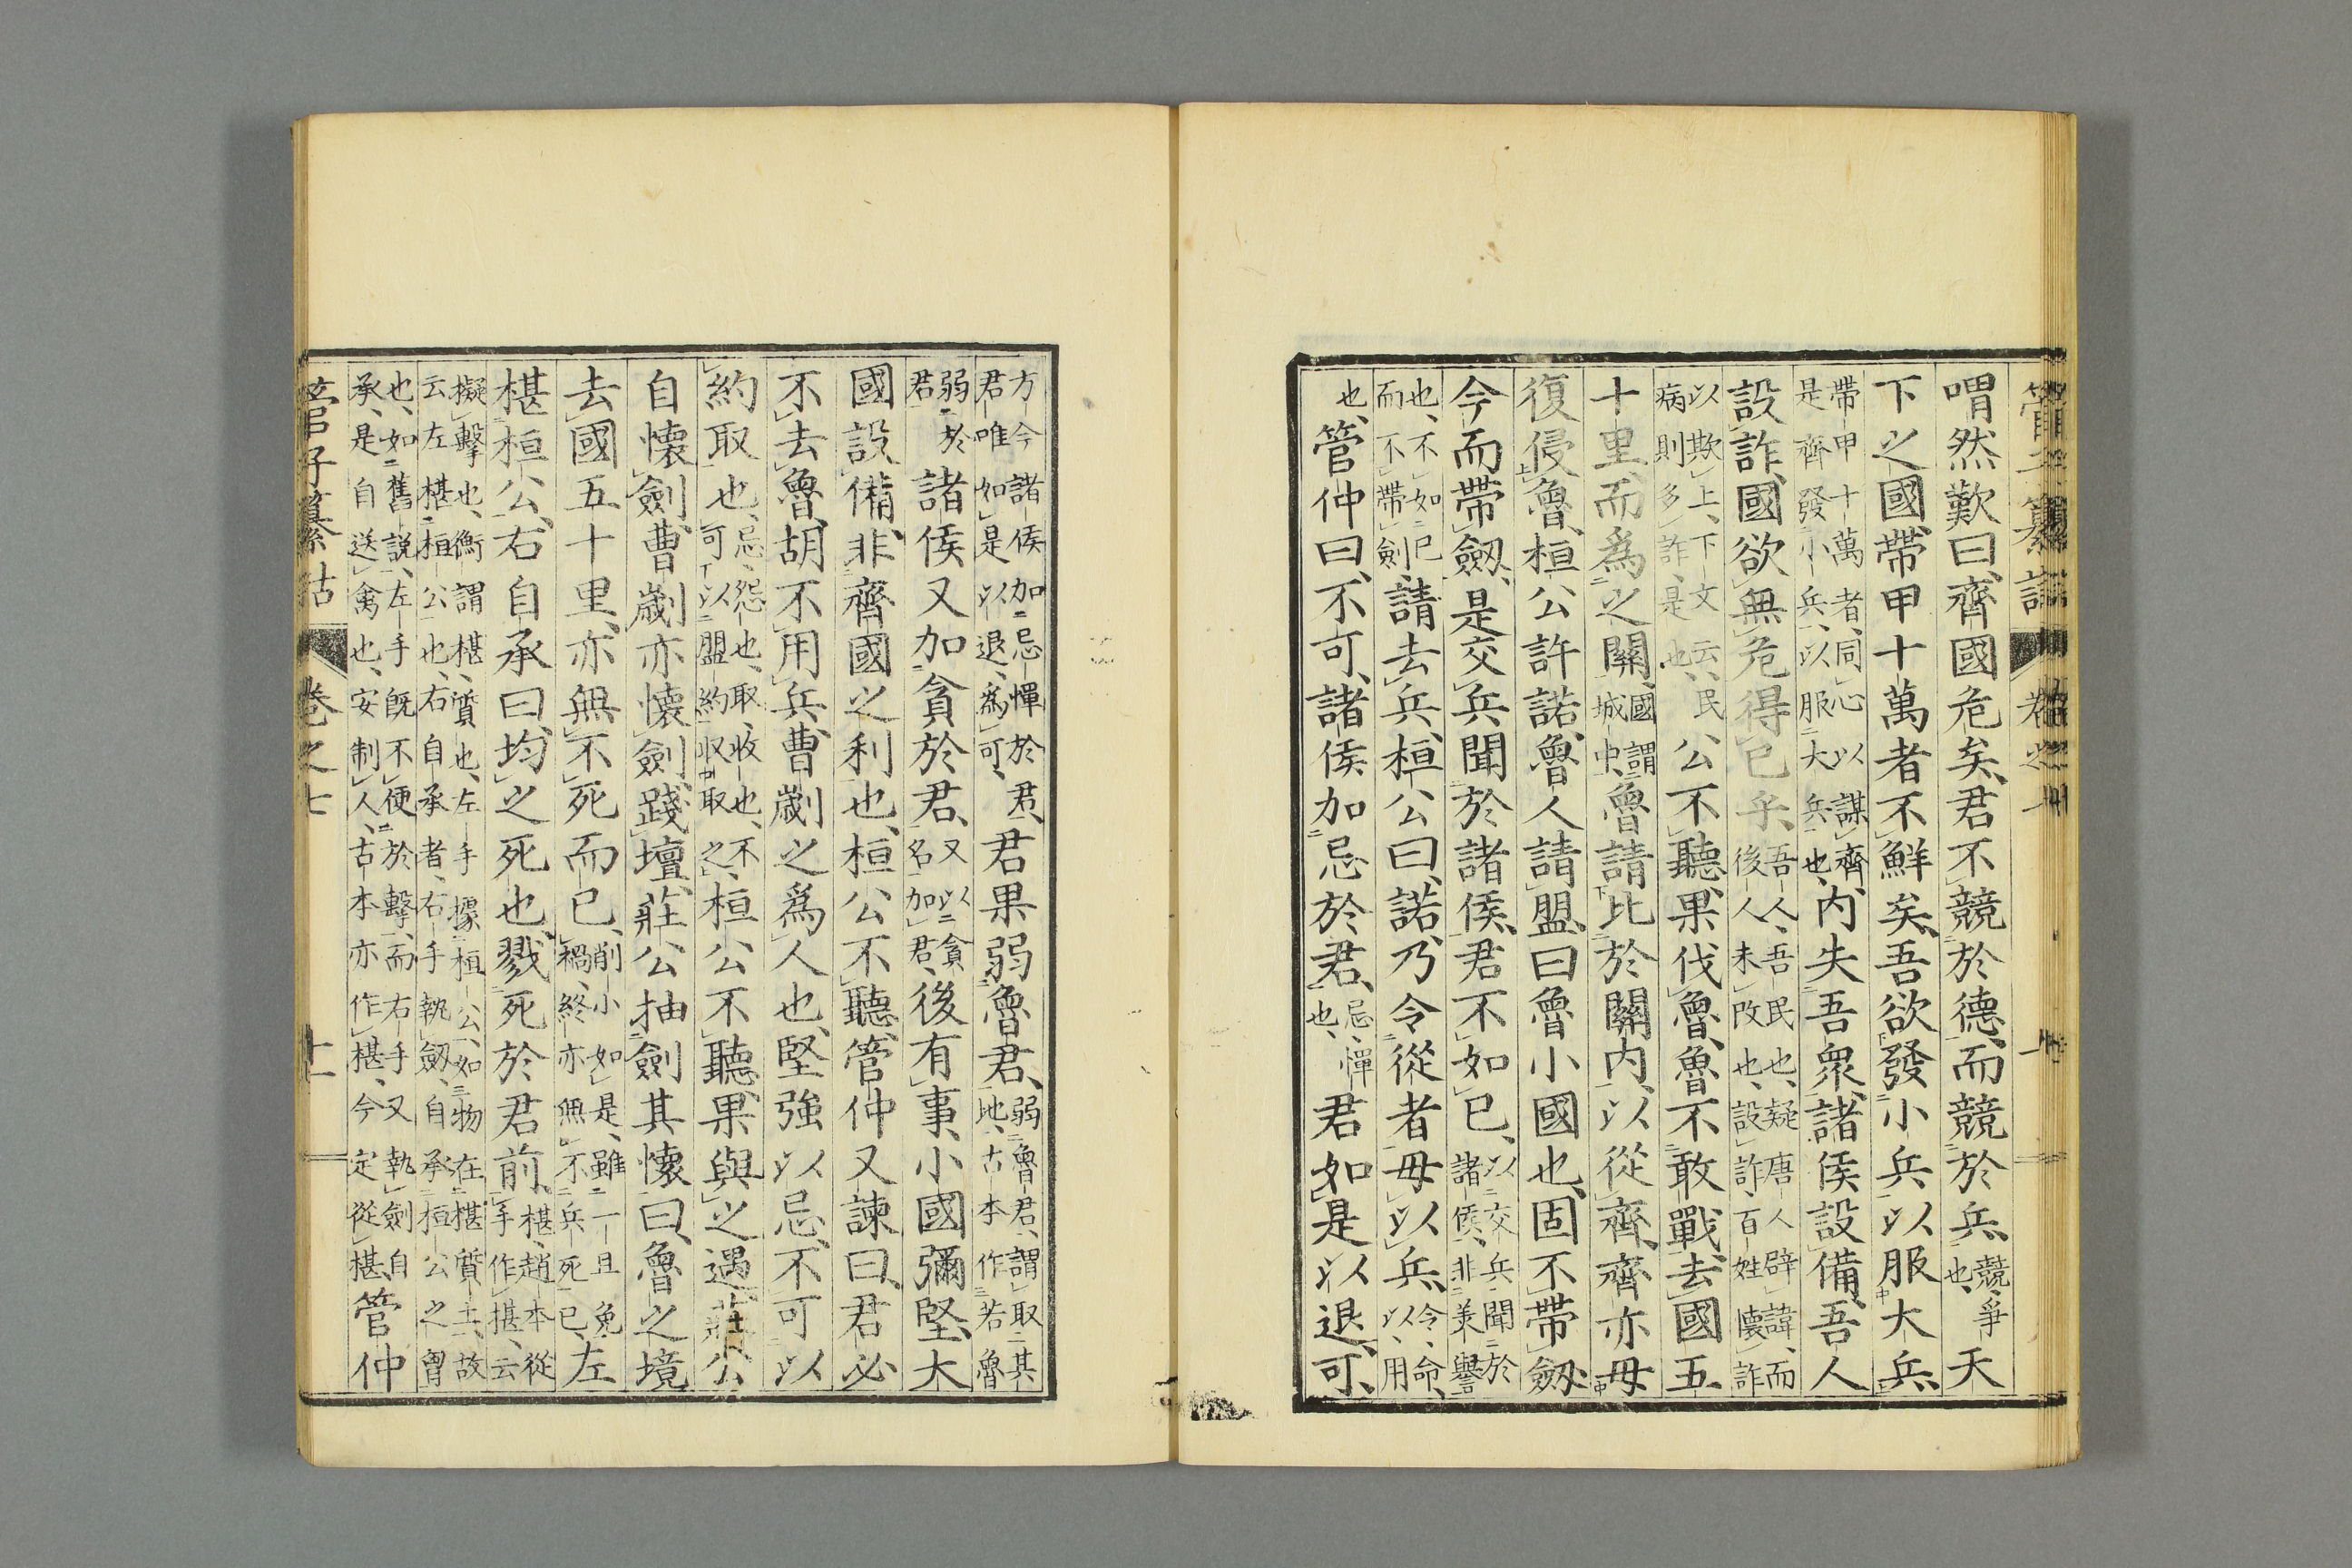 喟然歎曰、齊國危矣、君不競於德、而競於兵、競爭也、天
下之國、帶甲十萬者不鮮矣、吾欲發小兵、以服大兵、
帶甲十萬者、同心以謀齊、是齊發小兵、以服大兵也、內失吾衆、諸侯設備、吾人
設詐、國欲無危得已乎、吾人、吾民也、疑唐人辟諱、而後人未改也、設詐、百姓懷詐
以欺上、下文云、民病則多詐、是也、公不聽、果伐魯、魯不敢戰、去國五
十里、而爲之關、國謂城中、魯請比於關內、以從齊、齊亦毋
復侵魯、桓公許諾、魯人請盟、曰魯小國也、固不帶劔、
今而帶劔、是交兵聞於諸侯、君不如已、以交兵聞於諸侯、非美譽
也、不如已而不帶劍、請去兵、桓公曰、諾、乃令從者毋以兵、令、命、以、用
也、管仲曰、不可、諸侯加忌於君、忌、憚也、君如是以退、可、
方今諸侯加忌憚於君、君唯如是以退、爲可、君果弱魯君、弱魯君、謂取其地、古本作若魯
君、弱於君、諸侯又加貪於君、又以貪名加君、後有事、小國彌堅、大
國設備、非齊國之利也、桓公不聽、管仲又諫曰、君必
不去魯、胡不用兵、曹劌之爲人也、堅強以忌、不可以
約取也、忌、怨也、取、收也、不可以盟約收取之、桓公不聽、果與之遇、莊公
自懷劍、曹劌亦懷劍踐壇、莊公抽劍其懷曰、魯之境
去國五十里、亦無不死而已、削小如是、雖一且免禍、終亦無不兵死已、左
椹桓公、右自承曰、均之死也、戮死於君前、椹、趙本從手作揕、云
擬擊也、衡謂椹、質也、左手據桓公、如物在椹質上、故云左椹桓公也、右自承者、右手執劔、自承桓公之胷
也、如舊說、左手旣不便於擊、而右手又執劍自承、是自送禽也、安制人、古本亦作椹、今定從椹、管仲
管子纂詁 卷之七 十一